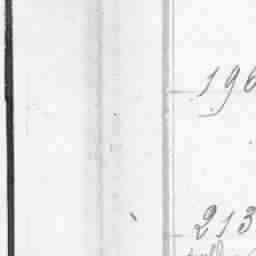 196
213